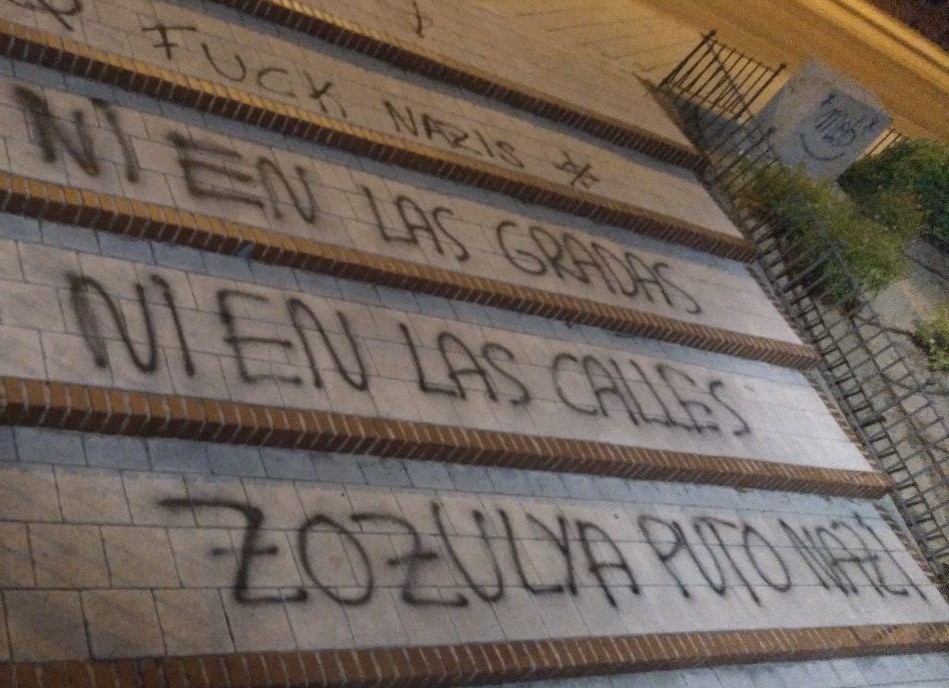 FUCK NAZIS
NI EN LAS GRADAS
NI EN LAS CALLES
ZOZULYA PUTO NAZI